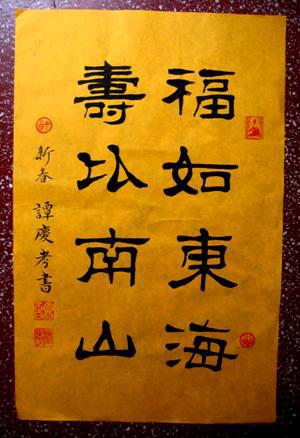 福如東海
壽比南山
新春 譚慶孝書